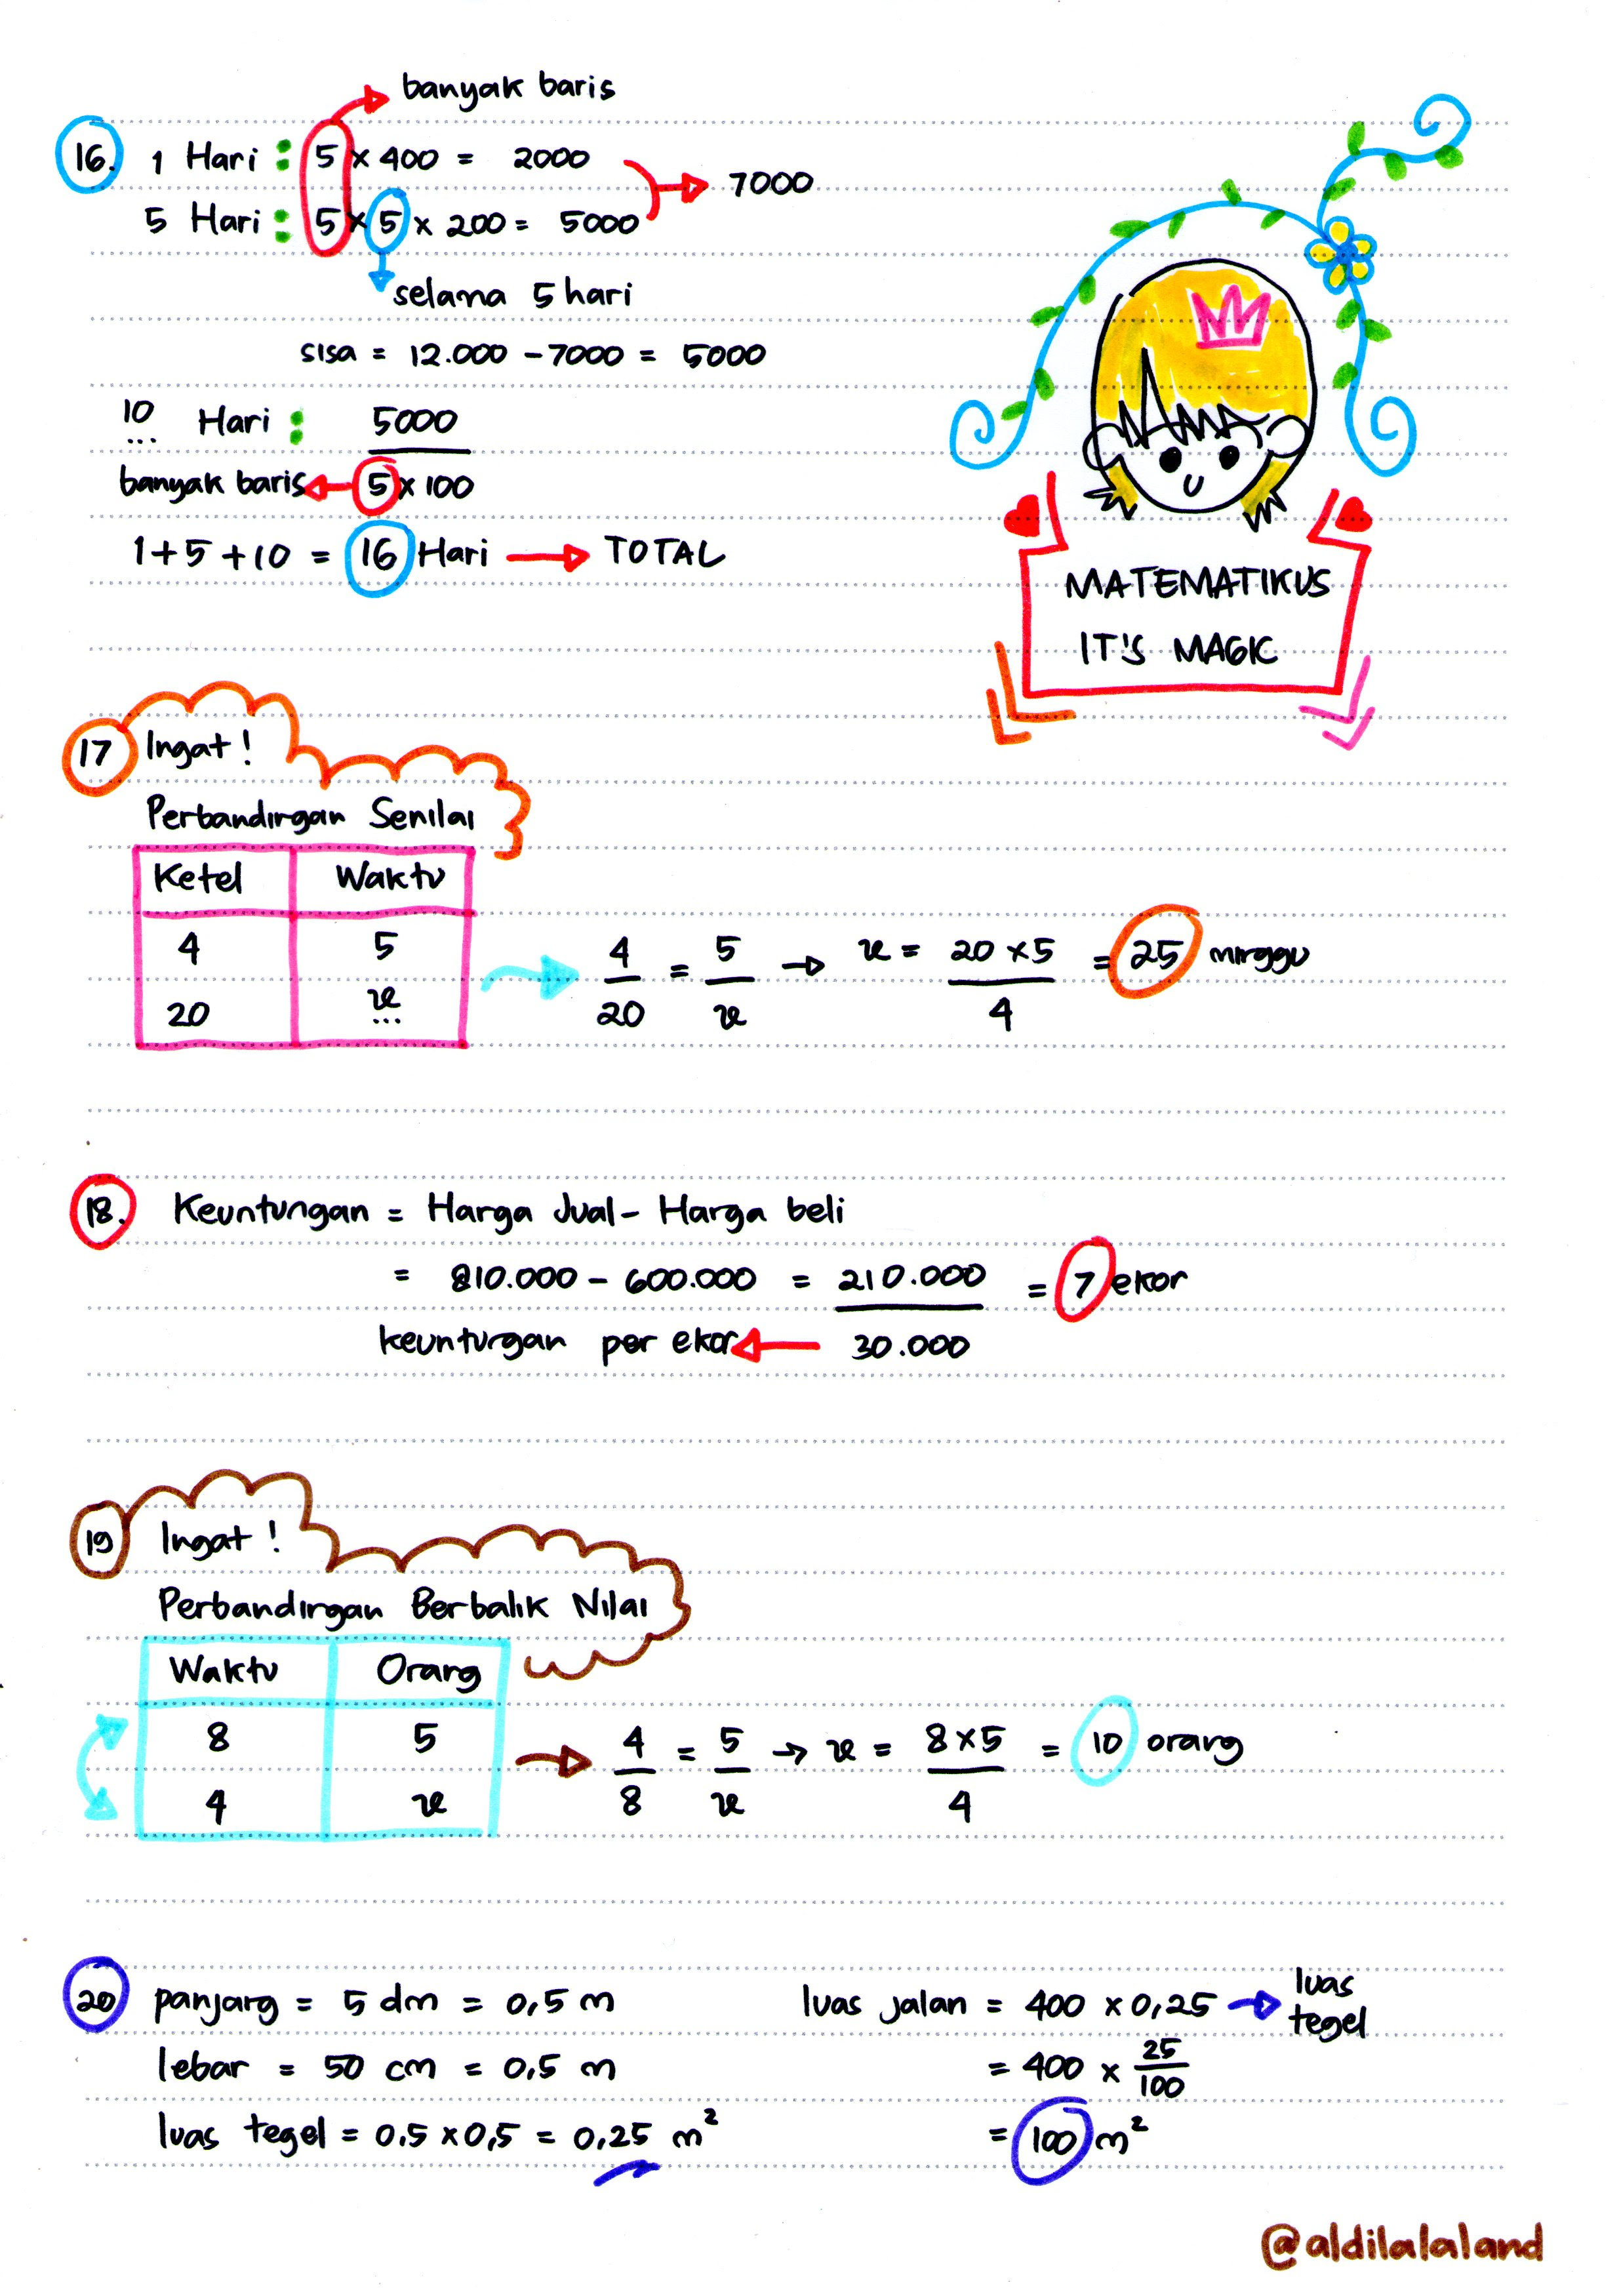 banyak baris
16. 1 Hari : 5 × 400 = 2000
7000
5 Hari : 5 × 5 × 200 = 5000
selama 5 hari
sisa = 12.000 - 7000 = 5000
10 ... Hari : 5000
banyak baris 5 × 100
1 + 5 + 10 = 16 Hari → TOTAL
MATEMATIKUS
IT'S MAGIC
17 Ingat !
Perbandingan Senilai
Ketel Waktu
4 5
20 x ...
4/20 = 5/x → x = 20 × 5 / 4 = 25 minggu
18. Keuntungan = Harga Jual - Harga beli
= 810.000 - 600.000 = 210.000 = 7 ekor
keuntungan per ekor ← 30.000
19 Ingat !
Perbandingan Berbalik Nilai
Waktu Orang
8 5
4 x
4/8 = 5/x → x = 8 × 5 / 4 = 10 orang
20 panjang = 5 dm = 0,5 m
lebar = 50 cm = 0,5 m
luas tegel = 0.5 × 0,5 = 0,25 m²
luas jalan = 400 × 0,25 → luas tegel
= 400 × 25/100
= 100 m²
@aldilalaland